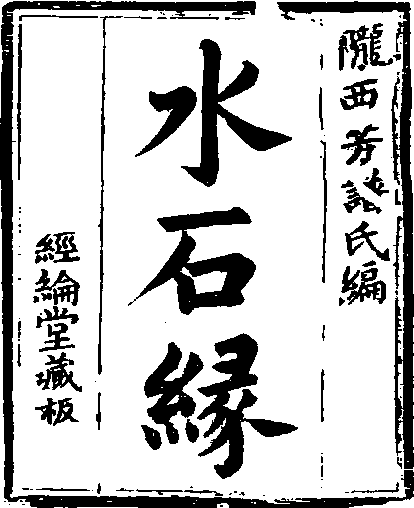 隴西芳譜氏編
水石緣
經綸堂藏板